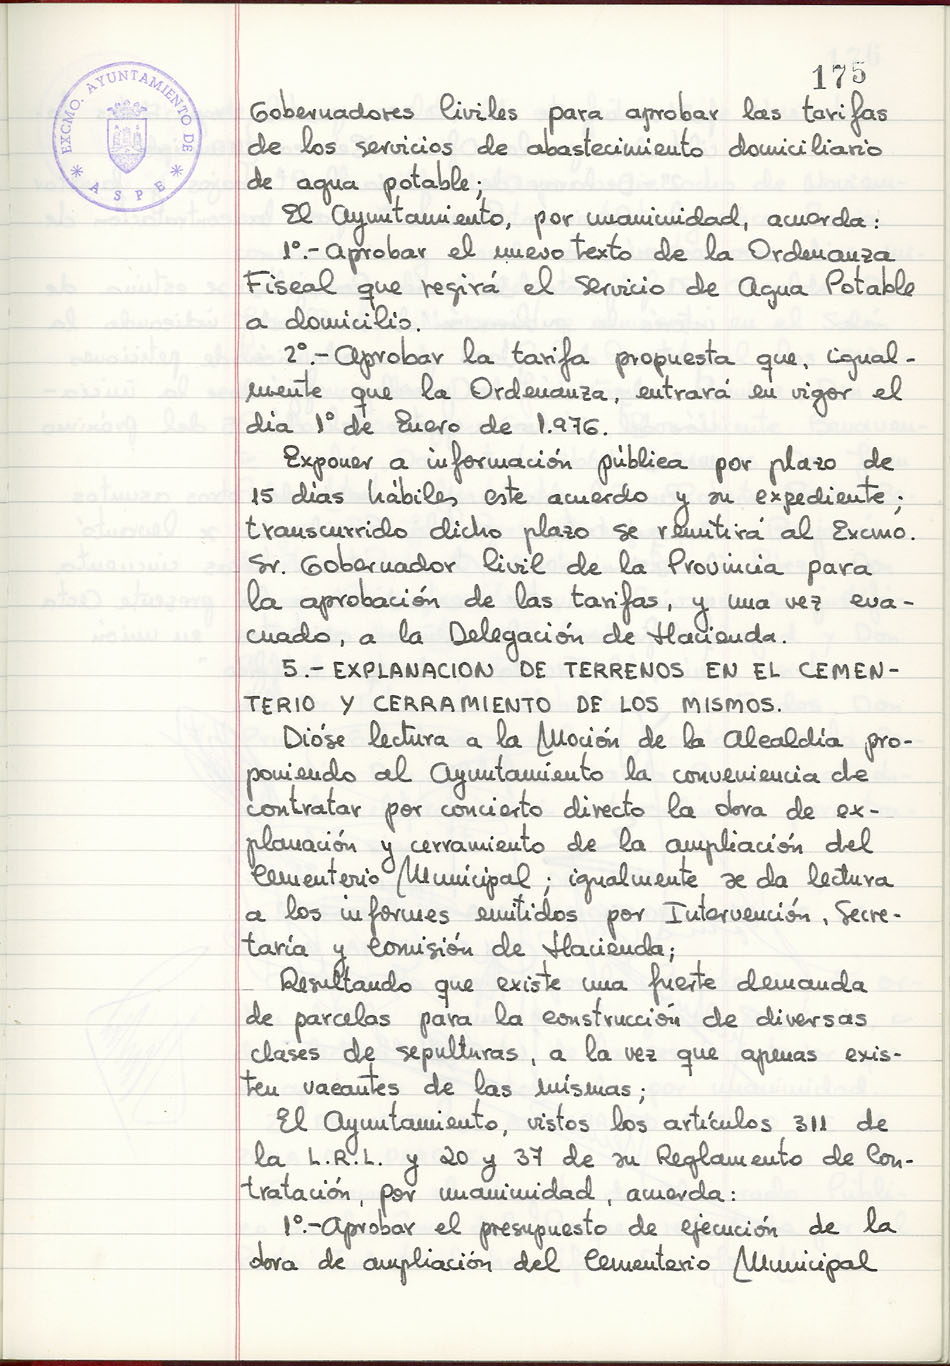 175
EXCMO. AYUNTAMIENTO DE
* ASPE *
Gobernadores Civiles para aprobar las tarifas
de los servicios de abastecimiento domiciliario
de agua potable;
El Ayuntamiento, por unanimidad, acuerda:
1º.- Aprobar el nuevo texto de la Ordenanza
Fiscal que regirá el Servicio de Agua Potable
a domicilio.
2º.- Aprobar la tarifa propuesta que, igual-
mente que la Ordenanza, entrará en vigor el
día 1º de Enero de 1.976.
Exponer a información pública por plazo de
15 días hábiles, este acuerdo y su expediente;
transcurrido dicho plazo se remitirá al Excmo.
Sr. Gobernador Civil de la Provincia para
la aprobación de las tarifas, y una vez eva-
cuado, a la Delegación de Hacienda.
5.- EXPLANACION DE TERRENOS EN EL CEMEN-
TERIO Y CERRAMIENTO DE LOS MISMOS.
Dióse lectura a la Moción de la Alcaldía pro-
poniendo al Ayuntamiento la conveniencia de
contratar por concierto directo la obra de ex-
planación y cerramiento de la ampliación del
Cementerio Municipal; igualmente se da lectura
a los informes emitidos por Intervención, Secre-
taría y Comisión de Hacienda;
Resultando que existe una fuerte demanda
de parcelas para la construcción de diversas
clases de sepulturas, a la vez que apenas exis-
ten vacantes de las mismas;
El Ayuntamiento, vistos los artículos 311 de
la L.R.L. y 20 y 37 de su Reglamento de Con-
tratación, por unanimidad, acuerda:
1º.- Aprobar el presupuesto de ejecución de la
obra de ampliación del Cementerio Municipal